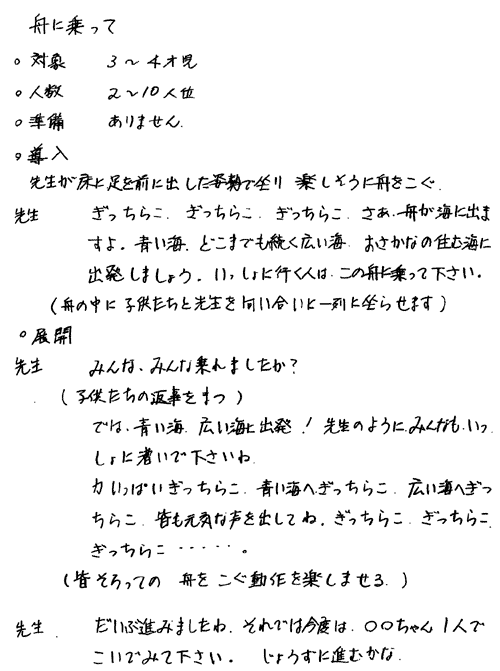 舟に乗って
○ 対象 3〜4才児
○ 人数 2〜10人位
○ 準備 ありません.
○ 導入
先生が床に足を前に出した姿勢で坐り 楽しそうに舟をこぐ.
先生 ぎっちらこ. ぎっちらこ. ぎっちらこ. さあ.舟が海に出ま
すよ. 青い海. どこまでも続く広い海. おさかなの住む海に
出発しましょう. いっしょに行く人は.この舟に乗って下さい.
(舟の中に 子供たちと先生を向い合いに一列に坐らせます)
○ 展開
先生 みんな、みんな乗れましたか?
(子供たちの返事をまつ)
では、青い海. 広い海に出発! 先生のように.みんなも.いっ
しょに漕いで下さいね.
力いっぱいぎっちらこ. 青い海へぎっちらこ. 広い海へぎっ
ちらこ. 皆も元気な声を出してね. ぎっちらこ. ぎっちらこ.
ぎっちらこ ‥‥‥。
(皆そろっての 舟をこぐ動作を楽しませる.)
先生. だいぶ進みましたね. それでは今度は. ○○ちゃん 1人で
こいでみて下さい. じょうずに進むかな.